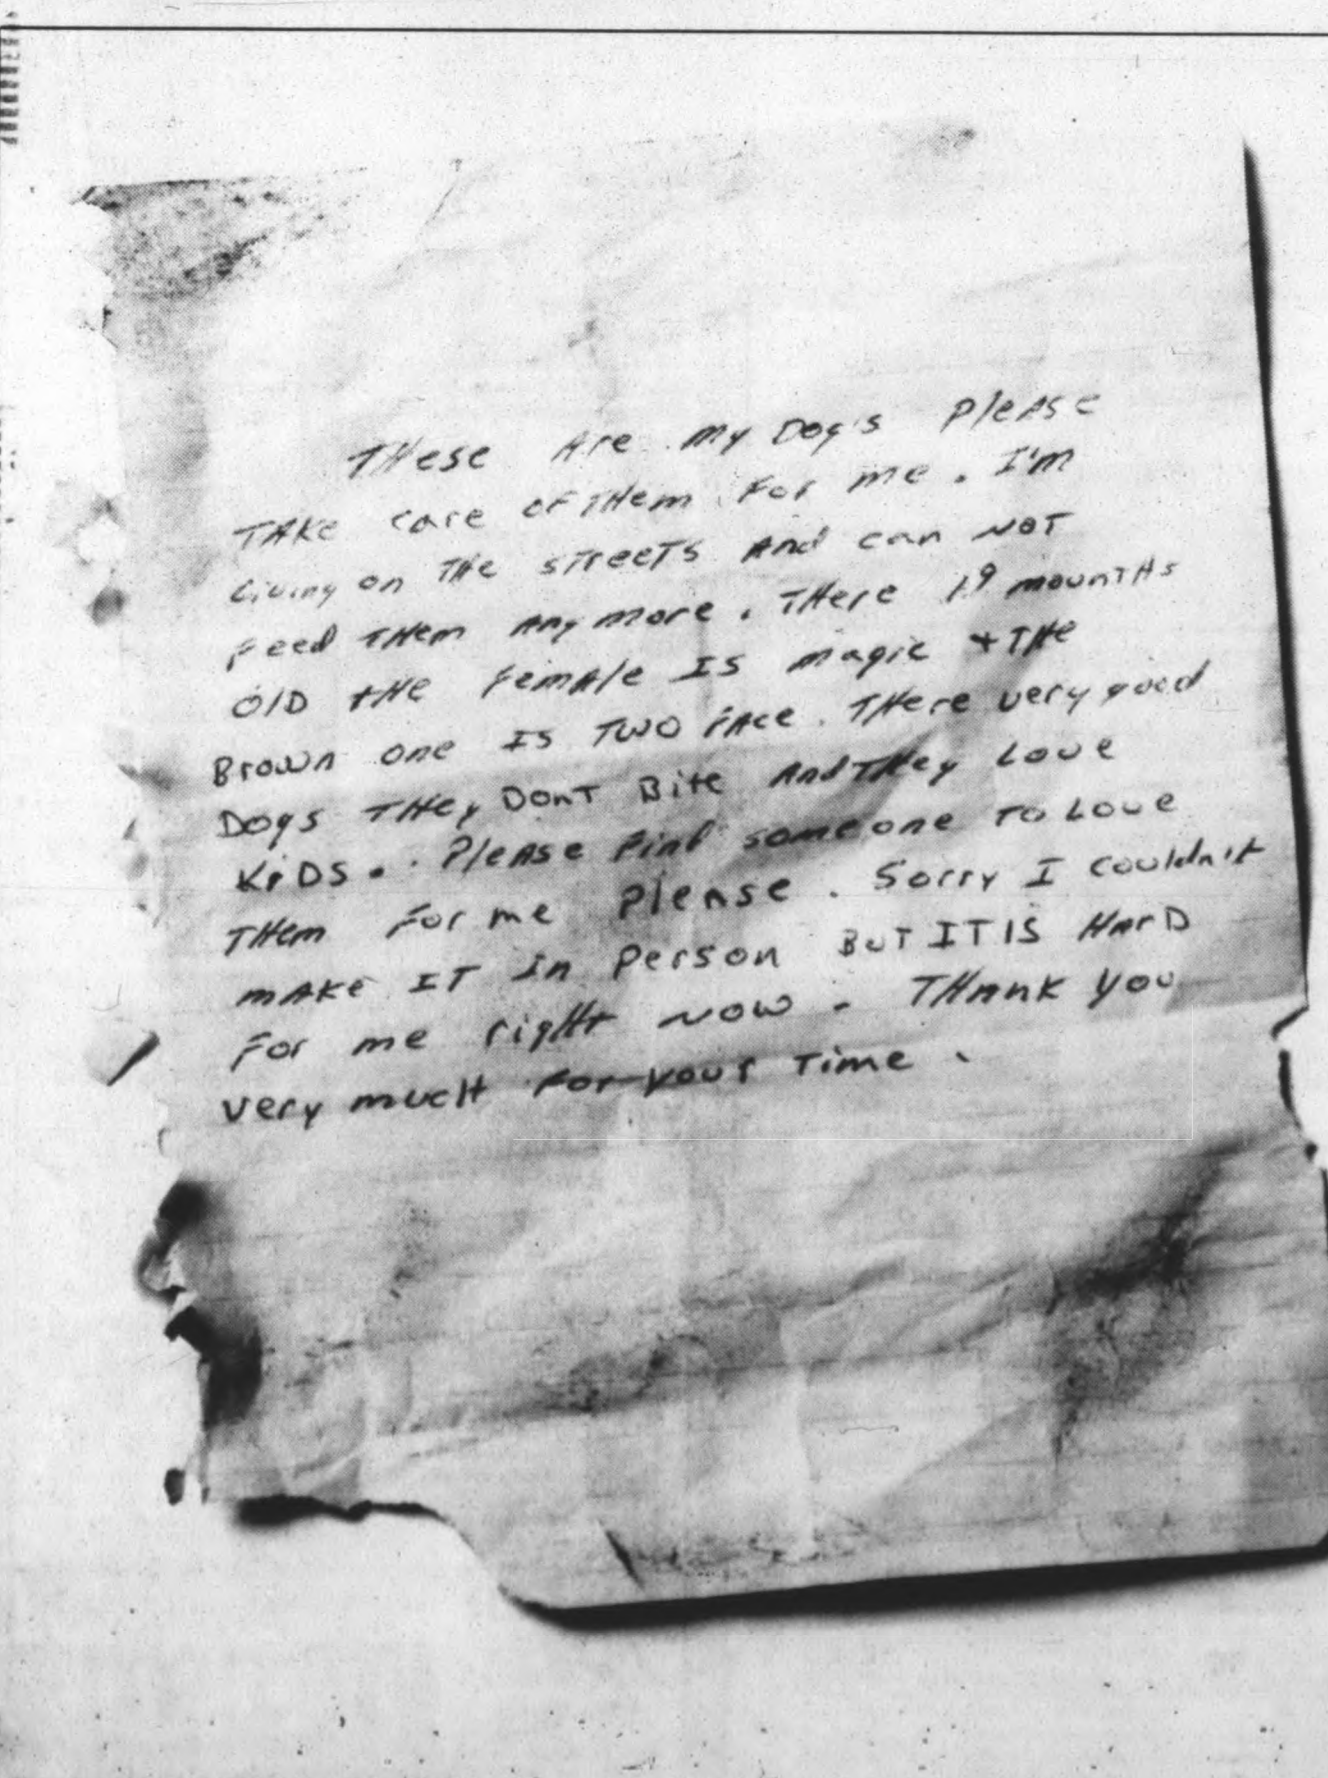 THese Are my Dog's PleAse
TAKe care oF THem For me. I'm
Living on THe sTreeTs And can NOT
Feed THem Any more. THere 19 mounTHs
OlD tHe FemAle IS magic + THe
Brown one IS TWO FAce. THere very good
Dogs THey DonT Bite And THey Love
KiDS. PleAse Find someone To Love
THem For me PleAse. Sorry I couldn't
mAKe IT In Person BuT IT IS HArD
For me rigHt NOW. THAnK you
very mucH For your Time.